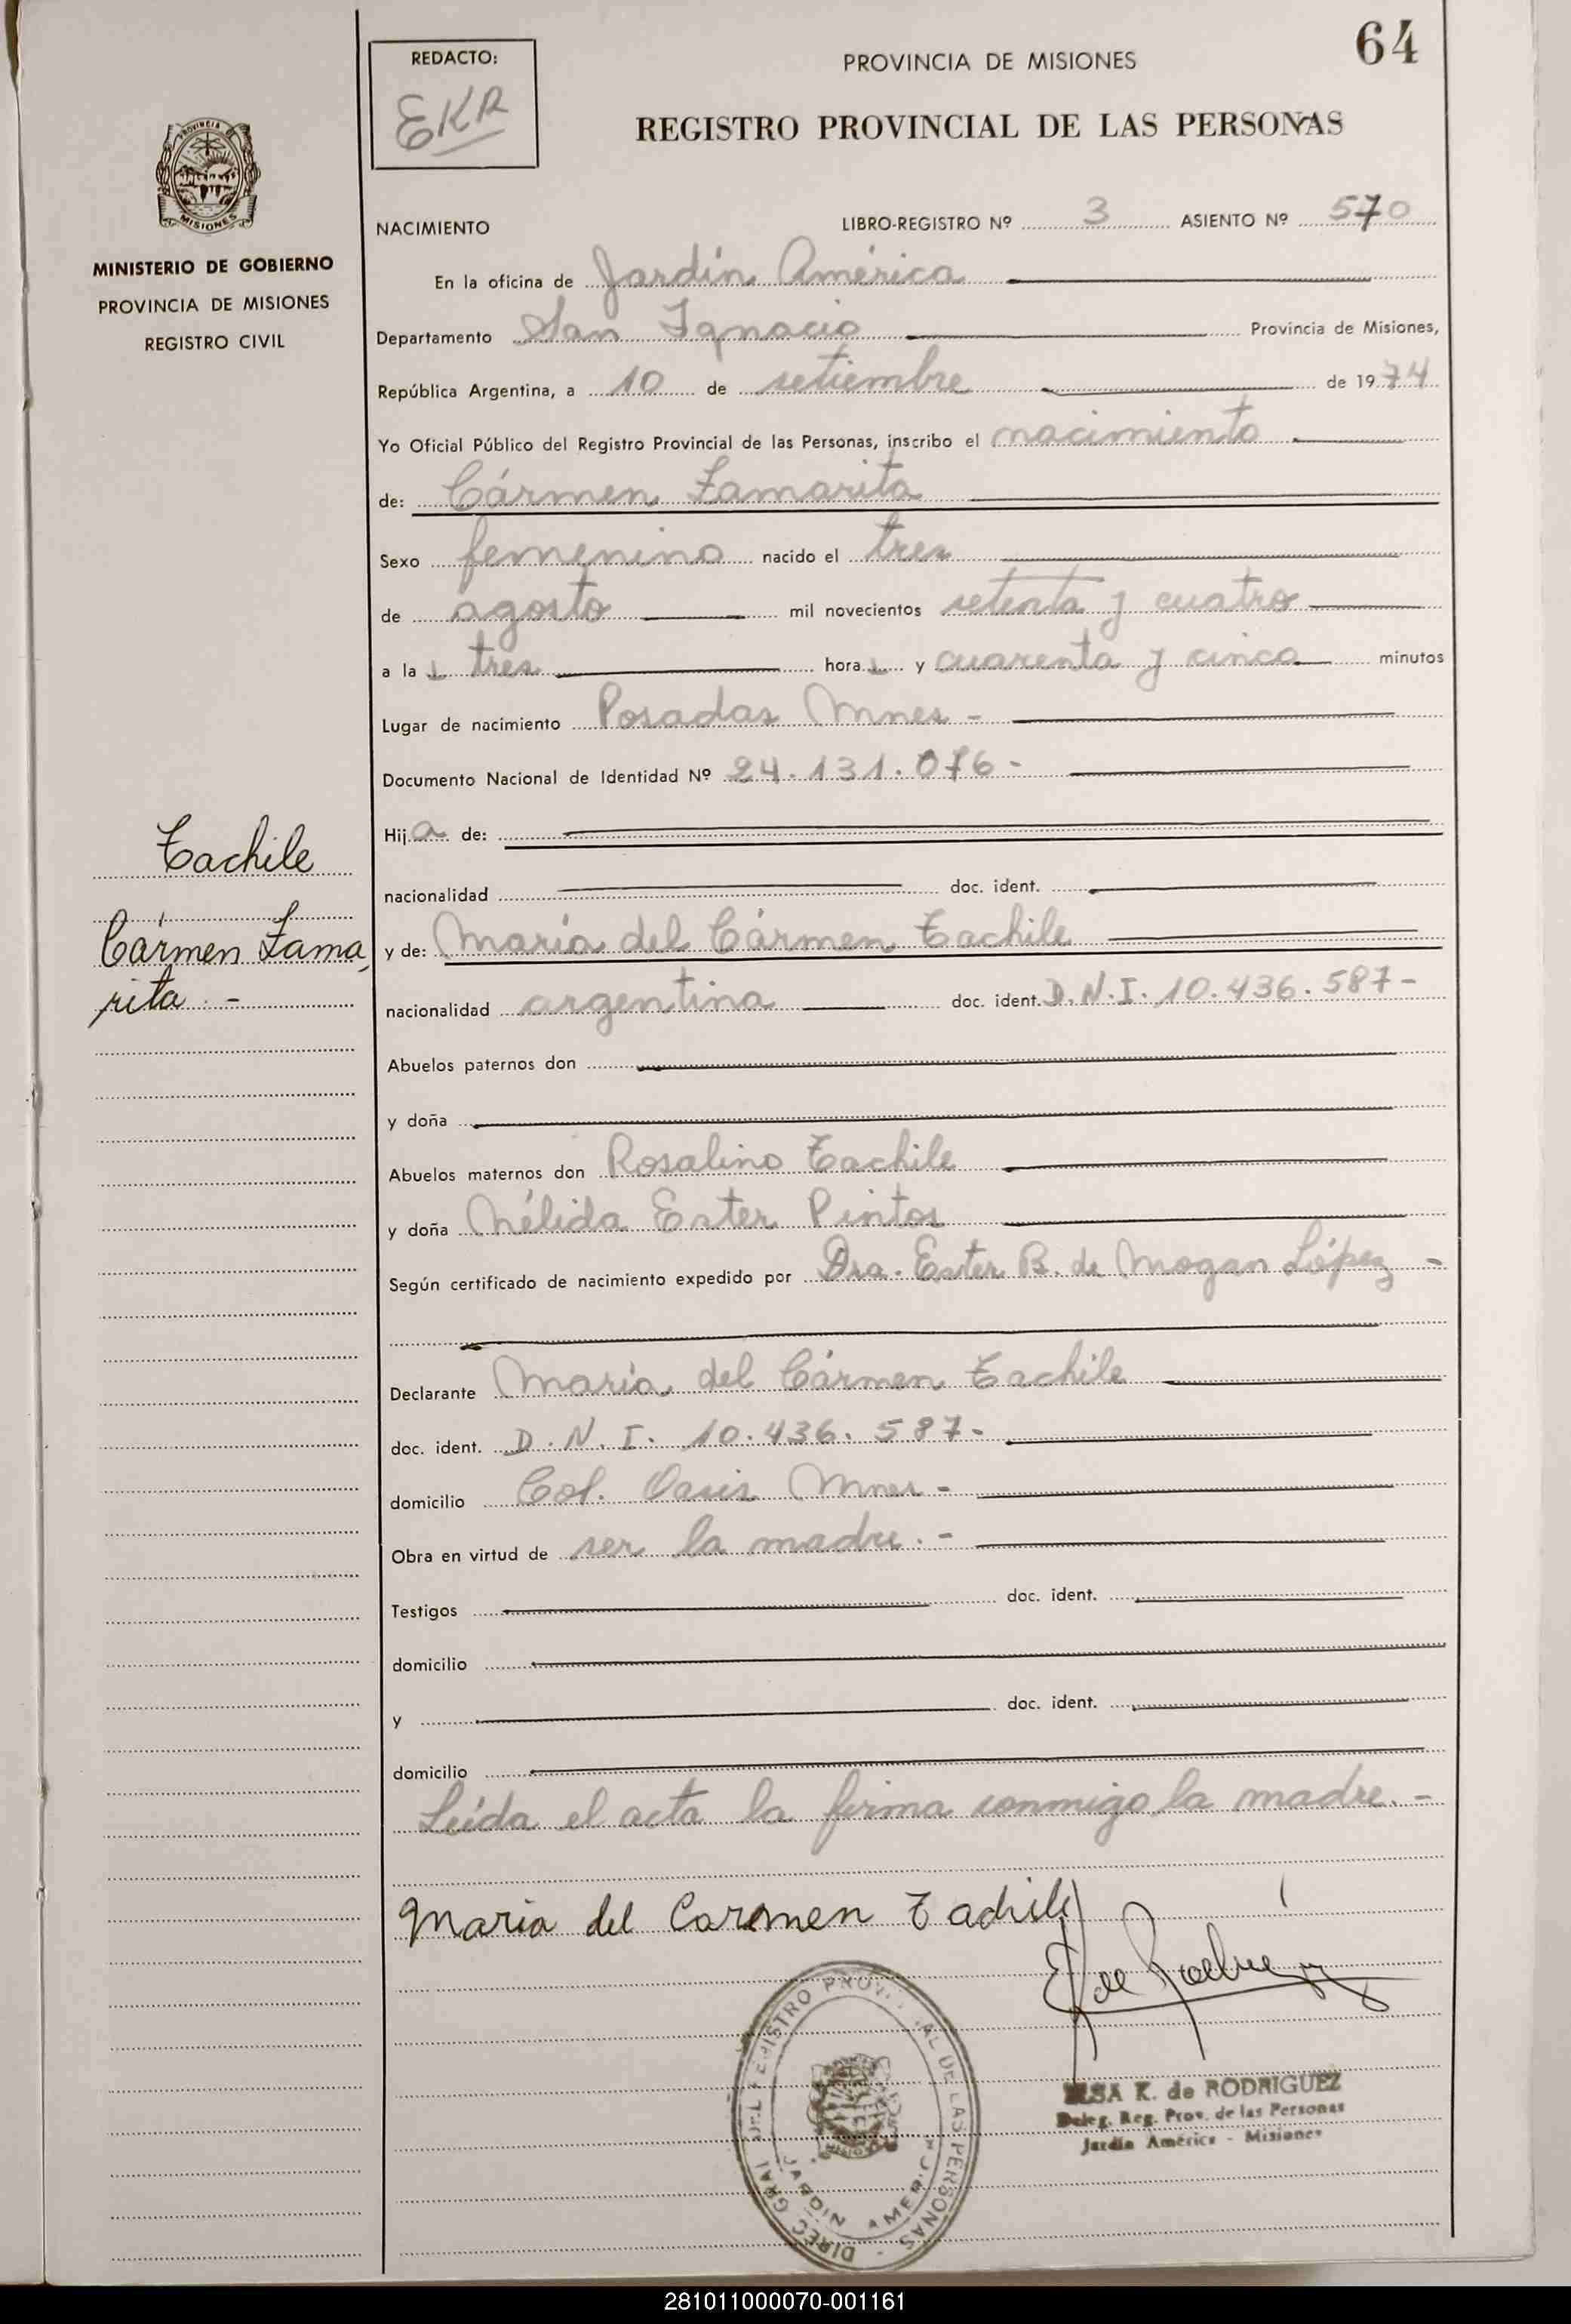 64
REDACTO:
EKR
PROVINCIA DE MISIONES
REGISTRO PROVINCIAL DE LAS PERSONAS
PROVINCIA DE
MISIONES
MINISTERIO DE GOBIERNO
PROVINCIA DE MISIONES
REGISTRO CIVIL
NACIMIENTO LIBRO-REGISTRO Nº 3 ASIENTO Nº 570
En la oficina de Jardín América
Departamento San Ignacio Provincia de Misiones,
República Argentina, a 10 de setiembre de 1974
Yo Oficial Público del Registro Provincial de las Personas, inscribo el nacimiento
de: Cármen Zamarita
Sexo femenino nacido el tres
de agosto mil novecientos setenta y cuatro
a la s tres hora s y cuarenta y cinco minutos
Lugar de nacimiento Posadas Mnes -
Documento Nacional de Identidad Nº 24.131.076-
Hija de:
nacionalidad doc. ident.
y de: María del Cármen Tachile
nacionalidad argentina doc. ident. D.N.I. 10.436.587-
Abuelos paternos don
y doña
Abuelos maternos don Rosalino Tachile
y doña Nélida Ester Pintos
Según certificado de nacimiento expedido por Dra. Ester B. de Mogan López -
Declarante María del Cármen Tachile
doc. ident. D.N.I. 10.436.587-
domicilio Col. Oasis Mnes -
Obra en virtud de ser la madre.-
Testigos doc. ident.
domicilio
y doc. ident.
domicilio
Leída el acta la firma conmigo la madre.-
Tachile
Cármen Zama
rita.-
Maria del Carmen Tachile
E de Rodriguez
DIREC. GRAL DEL REGISTRO PROVINCIAL DE LAS PERSONAS -
JARDIN AMERICA
ELSA K. de RODRIGUEZ
Deleg. Reg. Prov. de las Personas
Jardín América - Misiones
281011000070-001161